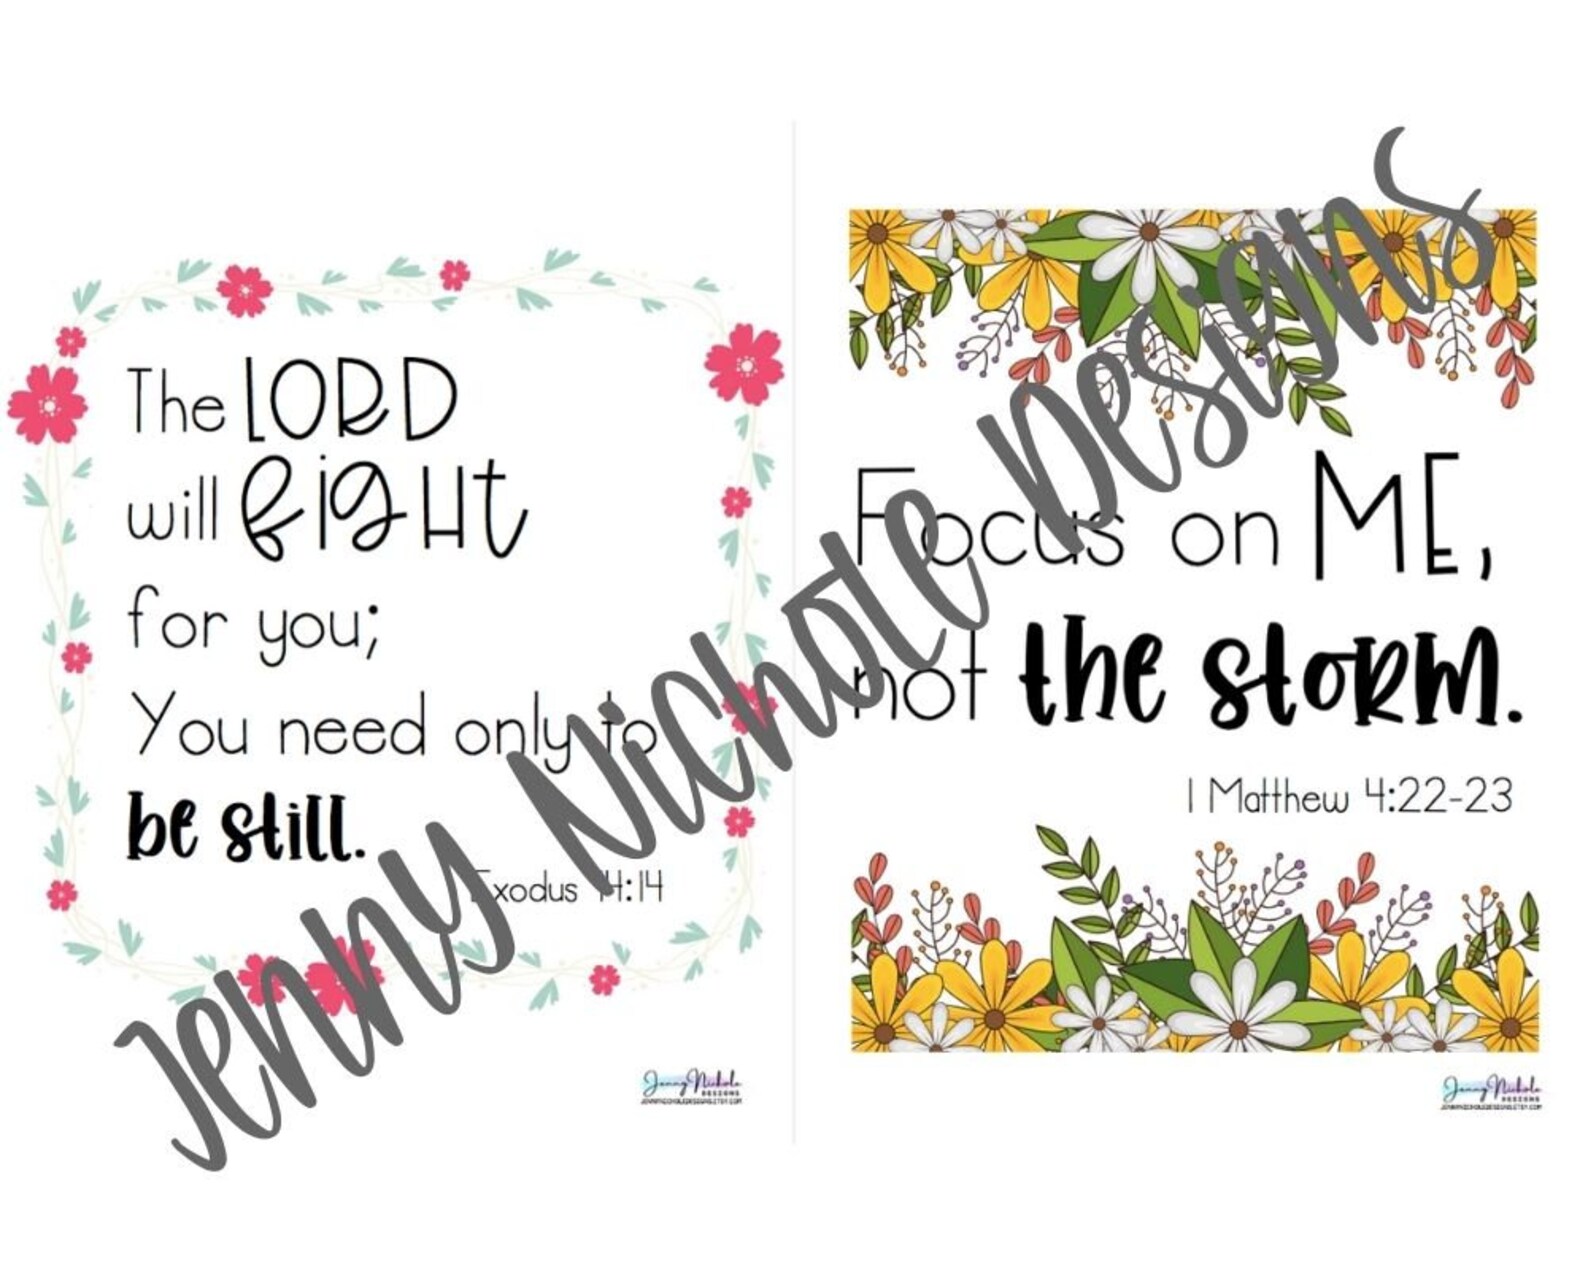 The LORD
will fight
for you;
You need only to
be still.
Exodus 14:14
Jenny Nichole
DESIGNS
JENNYNICHOLEDESIGNS.ETSY.COM
Focus on ME,
not the storm.
1 Matthew 4:22-23
Jenny Nichole
DESIGNS
JENNYNICHOLEDESIGNS.ETSY.COM
Jenny Nichole Designs